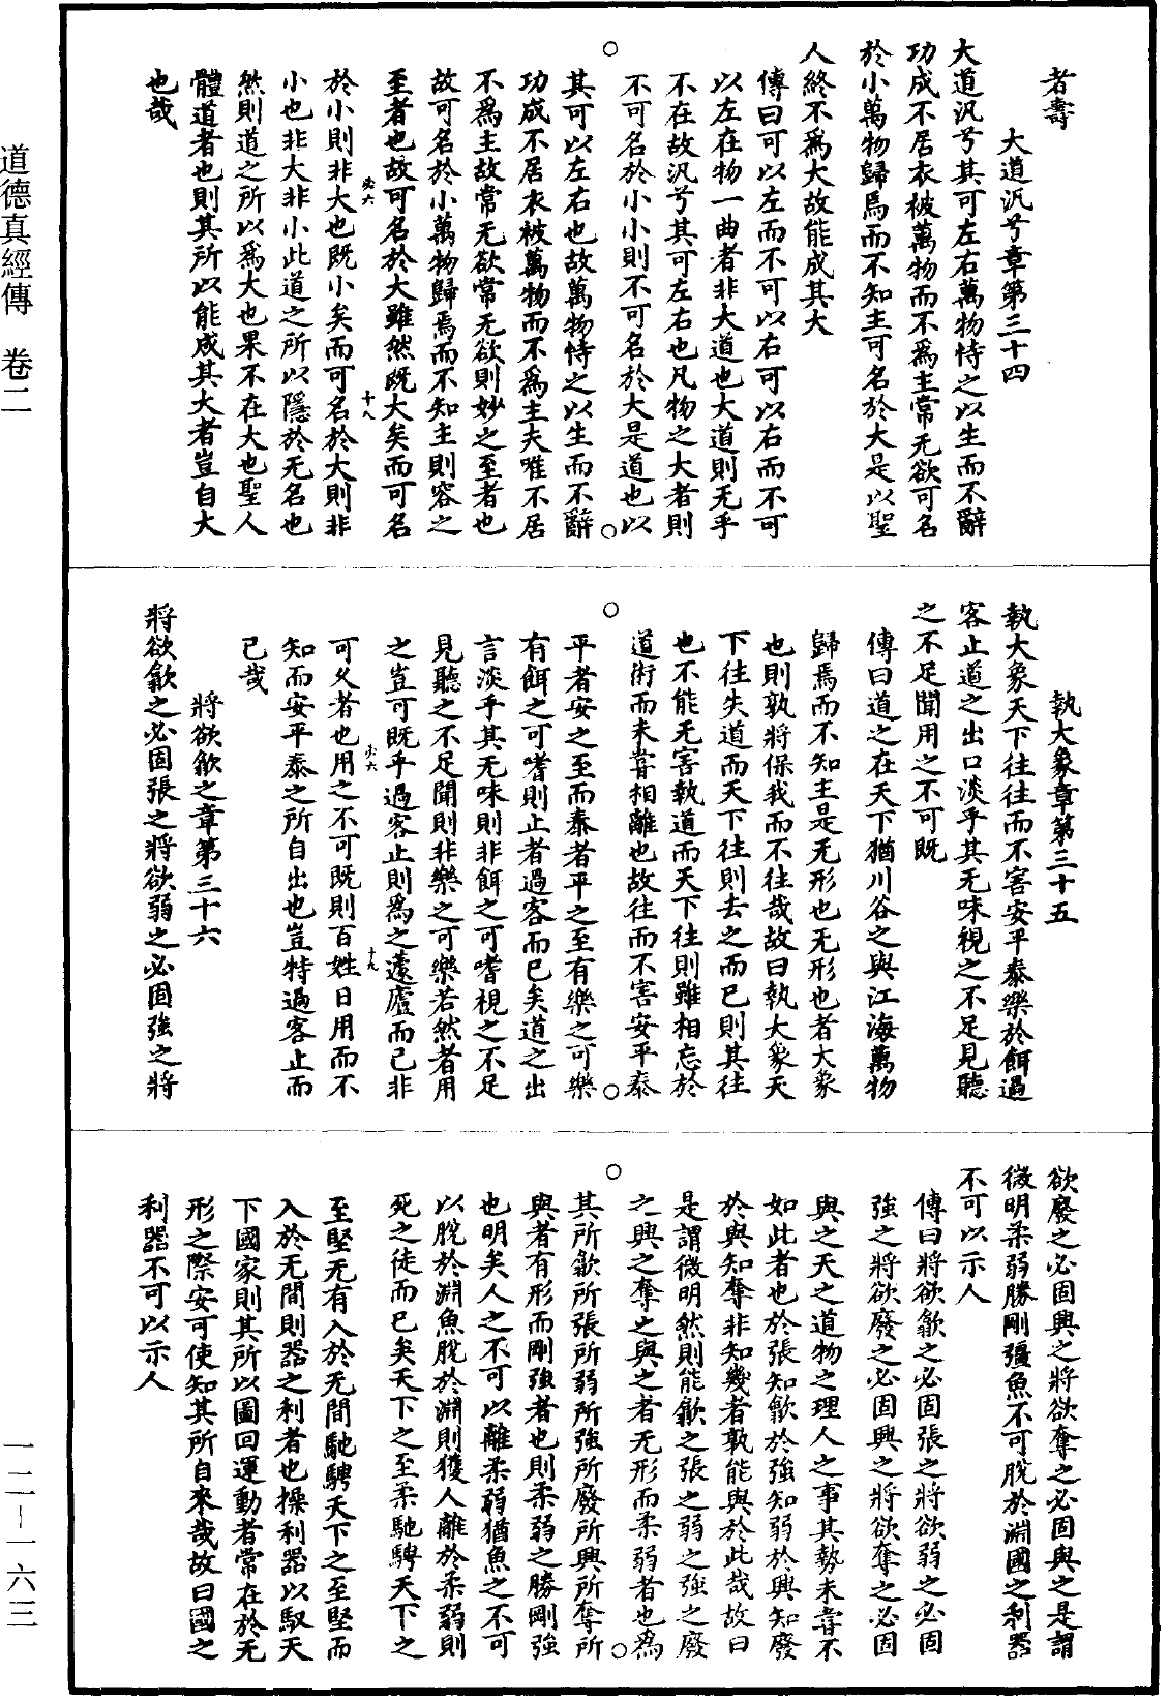 者壽
大道汎兮章第三十四
大道汎兮其可左右萬物恃之以生而不辭
功成不居衣被萬物而不爲主常无欲可名
於小萬物歸焉而不知主可名於大是以聖
人終不爲大故能成其大
傳曰可以左而不可以右可以右而不可
以左在物一曲者非大道也大道則无乎
不在故汎兮其可左右也凡物之大者則
不可名於小小則不可名於大是道也以
其可以左右也故萬物恃之以生而不辭
功成不居衣被萬物而不爲主夫唯不居
不爲主故常无欲常无欲則妙之至者也
故可名於小萬物歸焉而不知主則容之
至者也故可名於大雖然既大矣而可名
於小則非大也既小矣而可名於大則非
小也非大非小此道之所以隱於无名也
然則道之所以爲大也果不在大也聖人
體道者也則其所以能成其大者豈自大
也哉
執大象章第三十五
執大象天下往往而不害安平泰樂於餌過
客止道之出口淡乎其无味視之不足見聽
之不足聞用之不可既
傳曰道之在天下猶川谷之與江海萬物
歸焉而不知主是无形也无形也者大象
也則孰將保我而不往哉故曰執大象天
下往失道而天下往則去之而已則其往
也不能无害執道而天下往則雖相忘於
道術而未嘗相離也故往而不害安平泰
平者安之至而泰者平之至有樂之可樂
有餌之可嗜則止者過客而已矣道之出
言淡乎其无味則非餌之可嗜視之不足
見聽之不足聞則非樂之可樂若然者用
之豈可既乎過客止則爲之蘧廬而已非
可久者也用之不可既則百姓日用而不
知而安平泰之所自出也豈特過客止而
已哉
將欲歙之章第三十六
將欲歙之必固張之將欲弱之必固強之將
欲廢之必固興之將欲奪之必固與之是謂
微明柔弱勝剛彊魚不可脫於淵國之利器
不可以示人
傳曰將欲歙之必固張之將欲弱之必固
強之將欲廢之必固興之將欲奪之必固
與之天之道物之理人之事其勢未嘗不
如此者也於張知歙於強知弱於興知廢
於與知奪非知幾者孰能與於此哉故曰
是謂微明然則能歙之張之弱之強之廢
之興之奪之與之者无形而柔弱者也爲
其所歙所張所弱所強所廢所興所奪所
與者有形而剛強者也則柔弱之勝剛強
也明矣人之不可以離柔弱猶魚之不可
以脫於淵魚脫於淵則獲人離於柔弱則
死之徒而已矣天下之至柔馳騁天下之
至堅无有入於无間馳騁天下之至堅而
入於无間則器之利者也操利器以馭天
下國家則其所以圖回運動者常在於无
形之際安可使知其所自來哉故曰國之
利器不可以示人
道德真經傳 卷二
一二－一六三
必六
十八
必六
十九